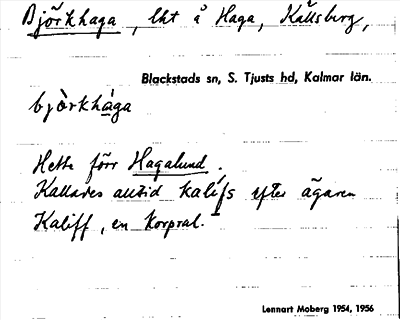 Björkhaga, lht å Haga, Källsberg,
Blackstads sn, S. Tjusts hd, Kalmar län.
bjö̀rkhàga
Hette förr Hagalund.
Kallades alltid kalífs efter ägaren
Kaliff, en korpral.
Lennart Moberg 1954, 1956